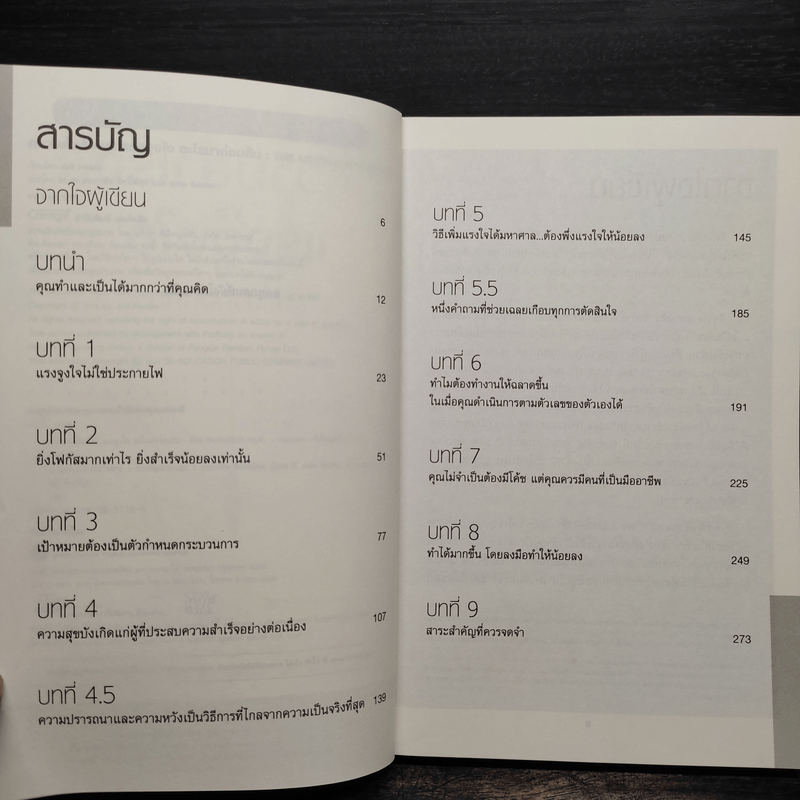 สารบัญ
จากใจผู้เขียน
6
บทนำ
คุณทำและเป็นได้มากกว่าที่คุณคิด
12
บทที่ 1
แรงจูงใจไม่ใช่ประกายไฟ
23
บทที่ 2
ยิ่งโฟกัสมากเท่าไร ยิ่งสำเร็จน้อยลงเท่านั้น
51
บทที่ 3
เป้าหมายต้องเป็นตัวกำหนดกระบวนการ
77
บทที่ 4
ความสุขบังเกิดแก่ผู้ที่ประสบความสำเร็จอย่างต่อเนื่อง
107
บทที่ 4.5
ความปรารถนาและความหวังเป็นวิธีการที่ไกลจากความเป็นจริงที่สุด
139
บทที่ 5
วิธีเพิ่มแรงใจได้มหาศาล...ต้องพึ่งแรงใจให้น้อยลง
145
บทที่ 5.5
หนึ่งคำถามที่ช่วยเฉลยเกือบทุกการตัดสินใจ
185
บทที่ 6
ทำไมต้องทำงานให้ฉลาดขึ้น
ในเมื่อคุณดำเนินการตามตัวเลขของตัวเองได้
191
บทที่ 7
คุณไม่จำเป็นต้องมีโค้ช แต่คุณควรมีคนที่เป็นมืออาชีพ
225
บทที่ 8
ทำได้มากขึ้น โดยลงมือทำให้น้อยลง
249
บทที่ 9
สาระสำคัญที่ควรจดจำ
273